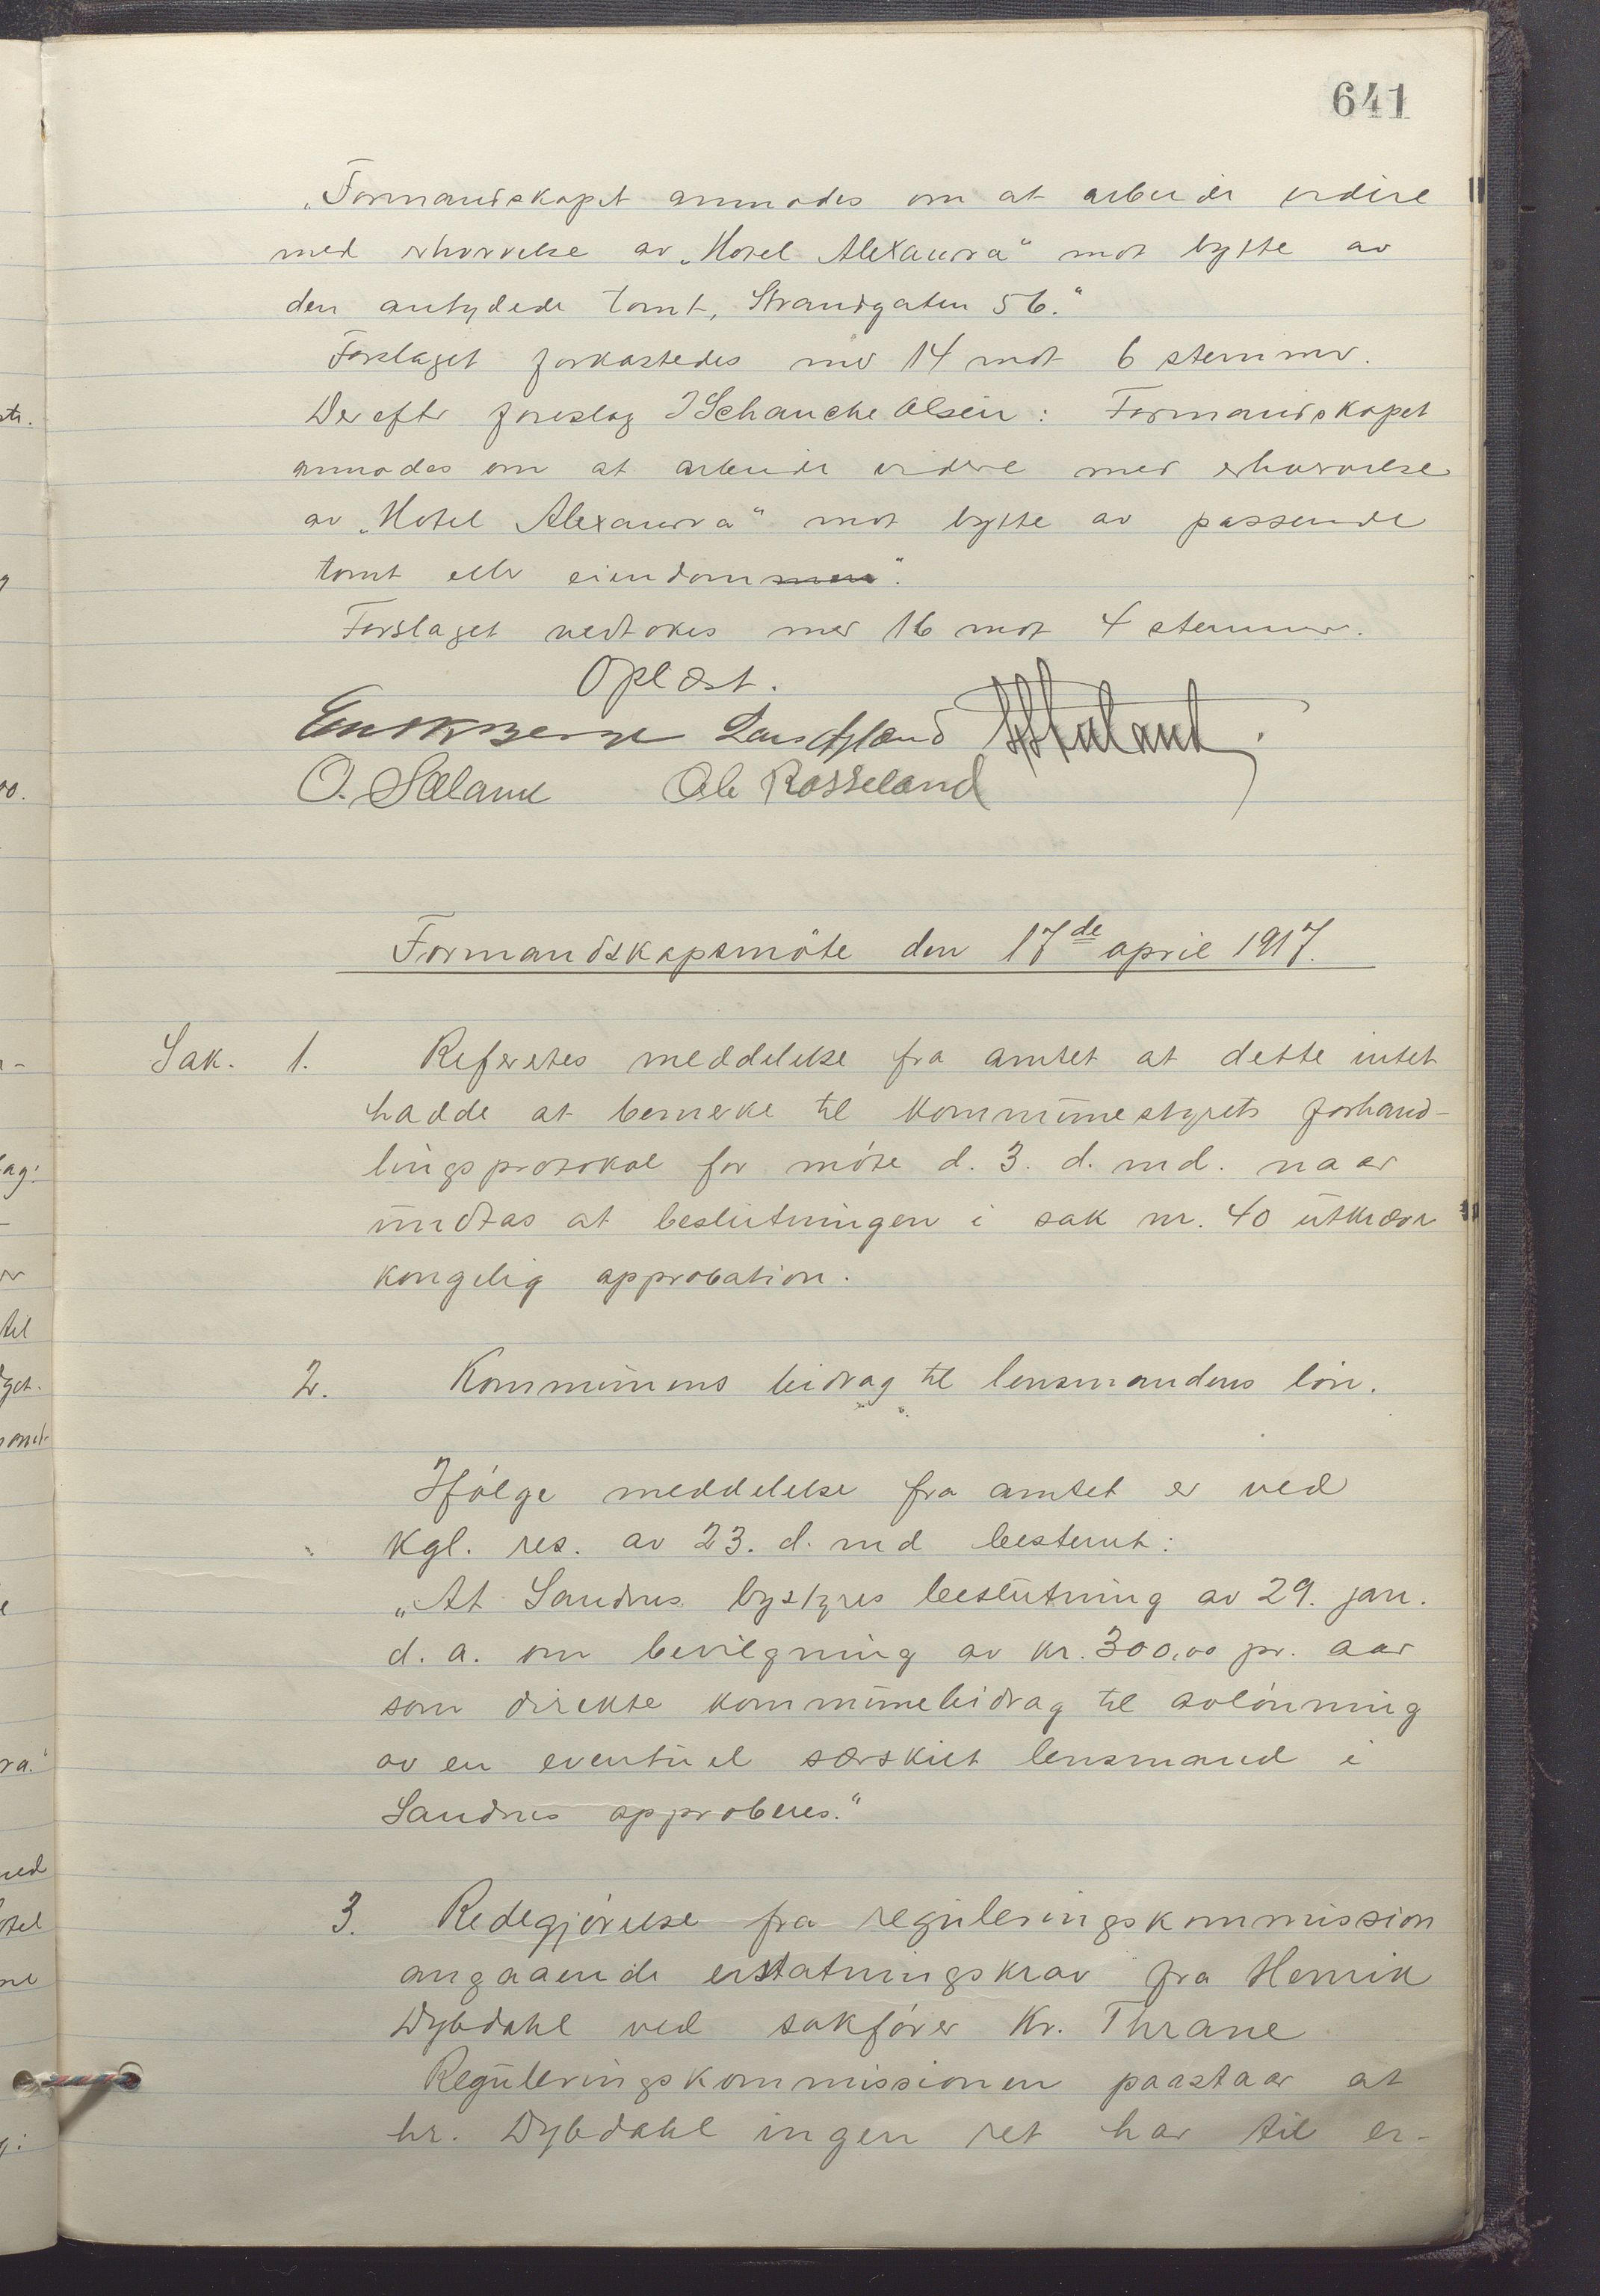 641
„Formandskapet anmodes om at arbeide videre
med erhvervelse av „Hotel Alexandra" mot bytte av
den antydede tomt, Strandgaten 56."
Forslaget forkastedes med 14 mot 6 stemmer.
Derefter foreslog J Schanche Olsen: Formandskapet
anmodes om at arbeide videre med erhvervelse
av „Hotel Alexandra" mot bytte av passende
tomt eller eiendom".
Forslaget vedtokes med 16 mot 4 stemmer.
Oplæst.
O. Sæland Ole Rosseland
Formandskapsmöte den 17de april 1917.
Sak. 1. Refertes meddelelse fra amtet at dette intet
hadde at bemerke til kommunestyrets forhand-
lingsprotokol for möte d. 3. d. md. naar
undtas at beslutningen i sak nr. 40 utkræver
kongelig approbation.
2. Kommunens bidrag til lensmandens lön.
Ifölge meddelelse fra amtet er ved
Kgl. res. av 23. d. md bestemt:
„At Sandnes bystyres beslutning av 29. jan.
d. a. om bevilgning av kr. 300,00 pr. aar
som direkte kommunebidrag til avlönning
av en eventuel særskilt lensmand i
Sandnes approberes."
3. Redegjörelse fra reguleringskommission
angaaende erstatningskrav fra Henrik
Dybdahl ved sakförer Kr. Thrane
Reguleringskommissionen paastaar at
hr. Dybdahl ingen ret har til er-